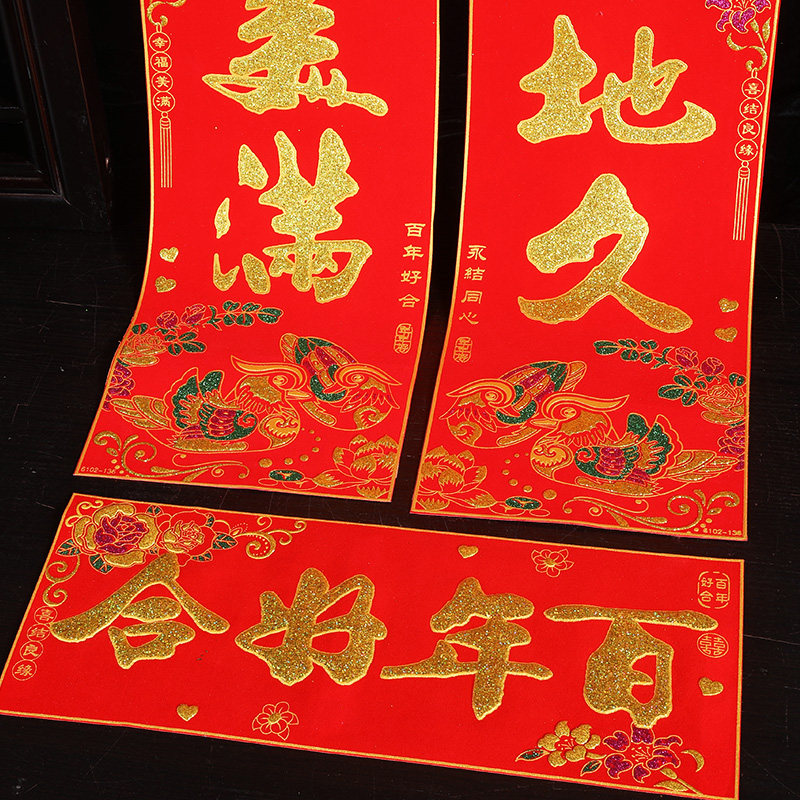 地久
喜结良缘
永結同心
6102-136
美满
幸福美满
百年好合
6102-136
百年好合
百年好合
囍
喜结良缘